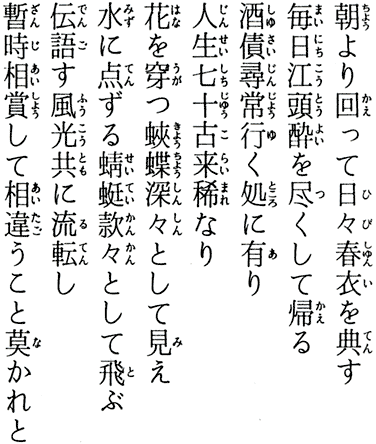 朝より回って日々春衣を典す
毎日江頭酔を尽くして帰る
酒債尋常行く処に有り
人生七十古来稀なり
花を穿つ蛺蝶深々として見え
水に点ずる蜻蜓款々として飛ぶ
伝語す風光共に流転し
暫時相賞して相違うこと莫かれと